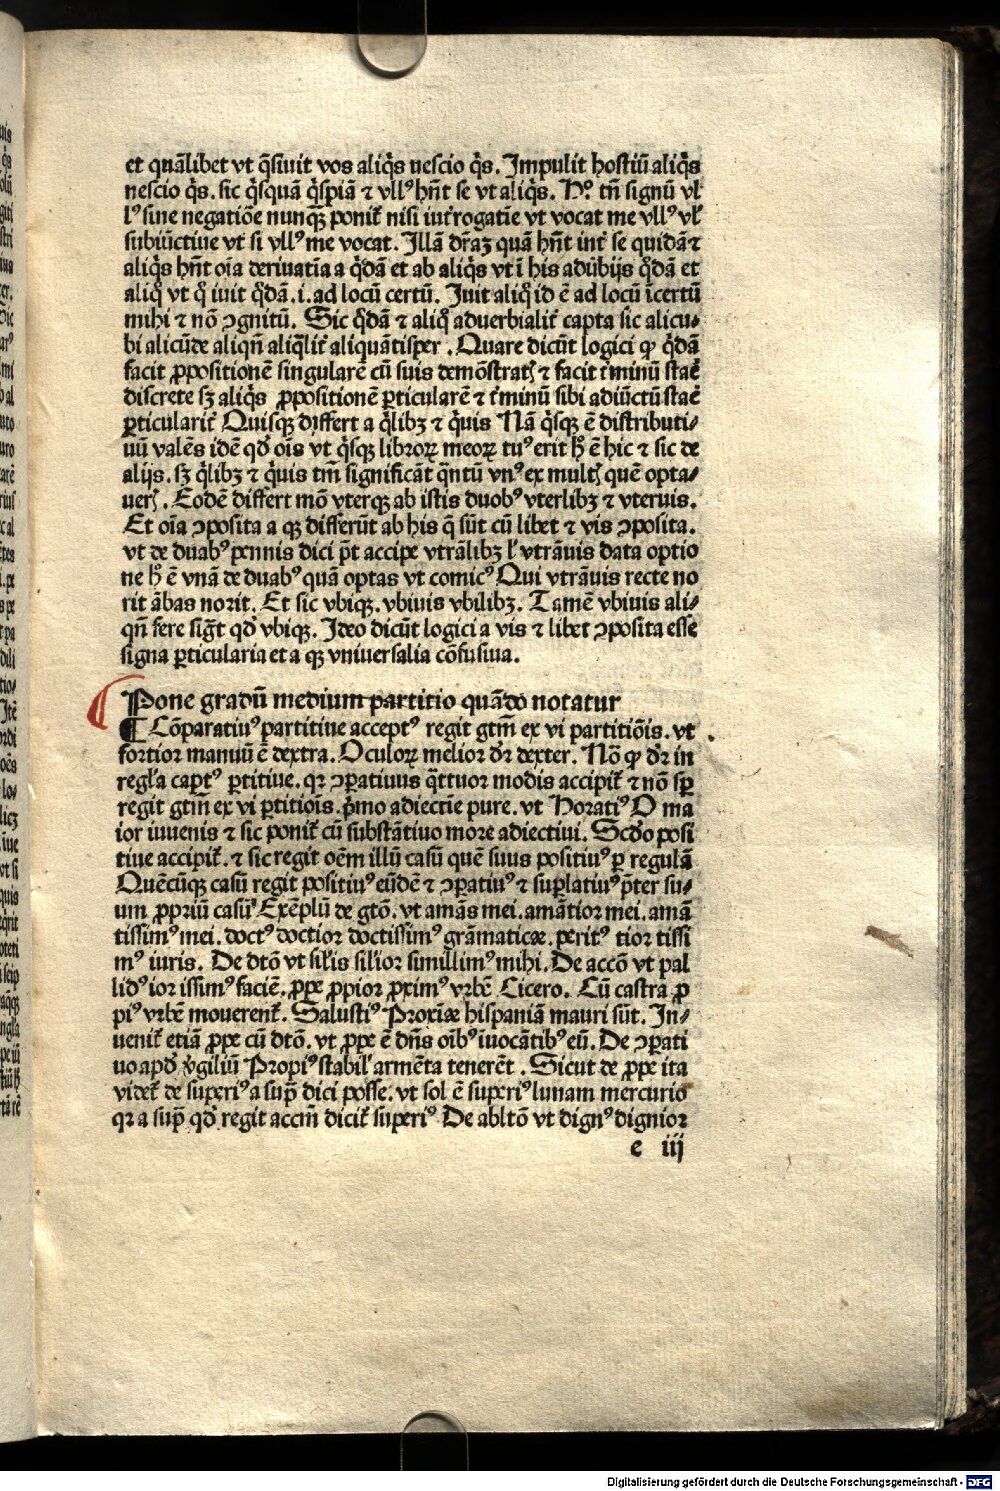 et quālibet vt q̄siuit vos aliq̇s nescio q̇s. Impulit hostiū aliq̇s
nescio q̇s. sic q̇squā q̇spiā ⁊ vllꝰ hn̄t se vt aliq̇s. Hoꝰ tn̄ signū vl̕
lꝰ sine negatiōe nunqꝫ̄ ponit̕ nisi int̕rogatīe vt vocat me vllꝰ vl̕
subiūctiue vt si vllꝰ me vocat. Illā dr̄aꝫ quā hn̄t int̕ se quidā ⁊
aliq̇s hn̄t oīa deriuatīa a q̇dā et ab aliq̇s vt ī his adūbijs q̇dā et
aliq̇ vt q̇ iuit q̇dā .i. ad locū certū. Iuit aliq̇ id ē ad locū īcertū
mihi ⁊ nō ꝯgnitū. Sic q̇dā ⁊ aliq̇ aduerbialit̕ capta sic alicu⸗
bi alicūde aliqn̄ aliq̄lit̕ aliquātisper. Quare dicūt logici ꝙ q̇dā
facit ꝓpositionē singularē cū suis demōstratꝭ ⁊ facit t̕minū stare̕
discrete sꝫ aliq̇s ꝓpositionē ꝑticularē ⁊ t̕minū sibi adiūctū stare̕
ꝑticularit̕ Quisqꝫ differt a q̇libꝫ ⁊ q̇uis Nā q̇sqꝫ ē distributi⸗
uū valēs idē qd̕ oīs vt q̇sqꝫ libroꝝ meoꝝ tuꝰ erit h̕ ē hic ⁊ sic de
alijs. sꝫ q̇libꝫ ⁊ q̇uis tm̄ significāt q̄ntū vnꝰ ex multꝭ quē opta⸗
uerꝭ. Eodē differt mō vterqꝫ ab istis duobꝰ vterlibꝫ ⁊ vteruis.
Et oīa ꝯposita a qꝫ differūt ab his q̄ sūt cū libet ⁊ vis ꝯposita.
vt de duabꝰ pennis dici pt̄ accipe vtrālibꝫ l̕ vtrāuis data optio
ne h̕ ē vnā de duabꝰ quā optas vt comicꝰ Qui vtrāuis recte no
rit ābas norit. Et sic vbiqꝫ. vbiuis vbilibꝫ. Tamē vbiuis ali⸗
qn̄ fere sig̅t qd̕ vbiqꝫ. Ideo dicūt logici a vis ⁊ libet ꝯposita esse
signa ꝑticularia et a qꝫ vniuersalia cōfusiua.
Pone gradū medium partitio quādo notatur
¶ Cōparatiuꝰ partitiue acceptꝰ regit gtm̄ ex vi partitiōis. vt
fortior manuū ē dextra. Oculoꝝ melior dr̄ dexter. Nō ꝙ dr̄ in
regl̕a captꝰ ꝑtitiue. qꝛ ꝯꝑatiuus q̄ttuor modis accipit̕ ⁊ nō sꝑ
regit gtm̄ ex vi ꝑtitiōis. p̄mo adiectīe pure. vt Horatiꝰ O ma
ior iuuenis ⁊ sic ponit̕ cū substātiuo more adiectiui. Scd̕o posi
tiue accipit̕. ⁊ sic regit oēm illū casū quē suus positiuꝰ ꝑ regulā
Quēcūqꝫ casū regit positiuꝰ eūdē ⁊ ꝯꝑatiuꝰ ⁊ suꝑlatiuꝰ p̄ter su⸗
um ꝓpriū casū Exēplū de gtō. vt amās mei. amātior mei. amā
tissimꝰ mei. doctꝰ doctior doctissimꝰ grāmaticæ. peritꝰ tior tissi
mꝰ iuris. De dtō vt sil̕is sil̕ior simillimꝰ mihi. De accō vt pal
lidꝰ ior issimꝰ faciē. ꝓpe ꝓpior ꝓximꝰ vrbē Cicero. Cū castra ꝓ
piꝰ vrbē mouerent̕. Salustiꝰ Proxīæ hispaniā mauri sūt. In⸗
uenit̕ etiā ꝓpe cū dtō. vt ꝓpe ē dn̄s oībꝰ īuocātibꝰ eū. De ꝯꝑati
uo apd̕ v̕giliū Propiꝰ stabil̕ armēta tenerēt. Sicut de ꝓpe ita
videt̕ de superiꝰ a sup̄ dici posse. vt sol ē superiꝰ lunam mercurio
qꝛ a sup̄ qd̕ regit accm̄ dicit̕ superiꝰ De abltō vt dignꝰ dignior
e iij
Digitalisierung gefördert durch die Deutsche Forschungsgemeinschaft - DFG